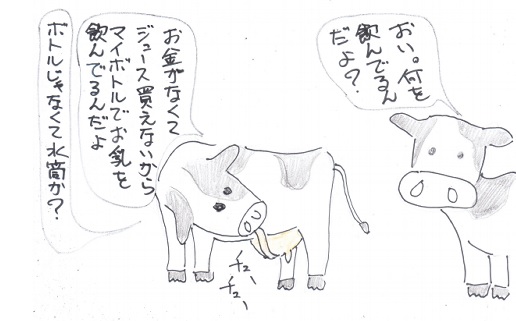 おい。何を
飲んでるん
だよ？
お金がなくて
ジュース買えないから
マイボトルでお乳を
飲んでるんだよ
ボトルじゃなくて水筒か？
チュー
チュー